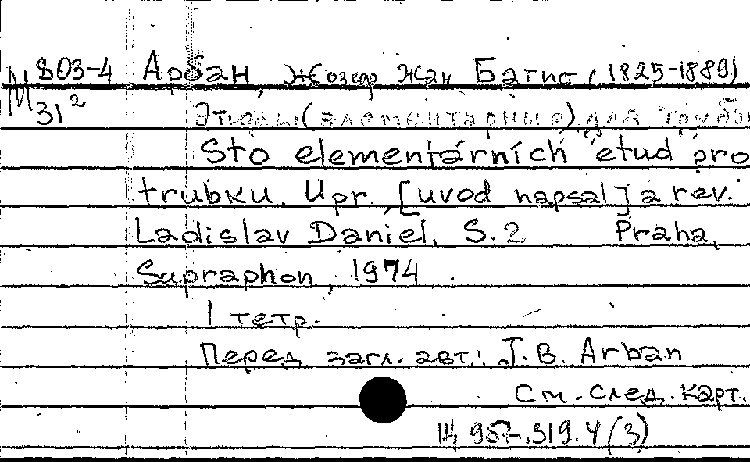 М 803-4 Арбан, Жозеф Жан Батист (1825-1889)
31² Этюды (элементарные) для трубы
Sto elementárních etud pro
trubku. Upr. [uvod napsal] a rev.
Ladislav Daniel. S.2 Praha,
Supraphon, 1974.
1 тетр.
Перед загл. авт.: J.B. Arban
См. след. карт.
(3)